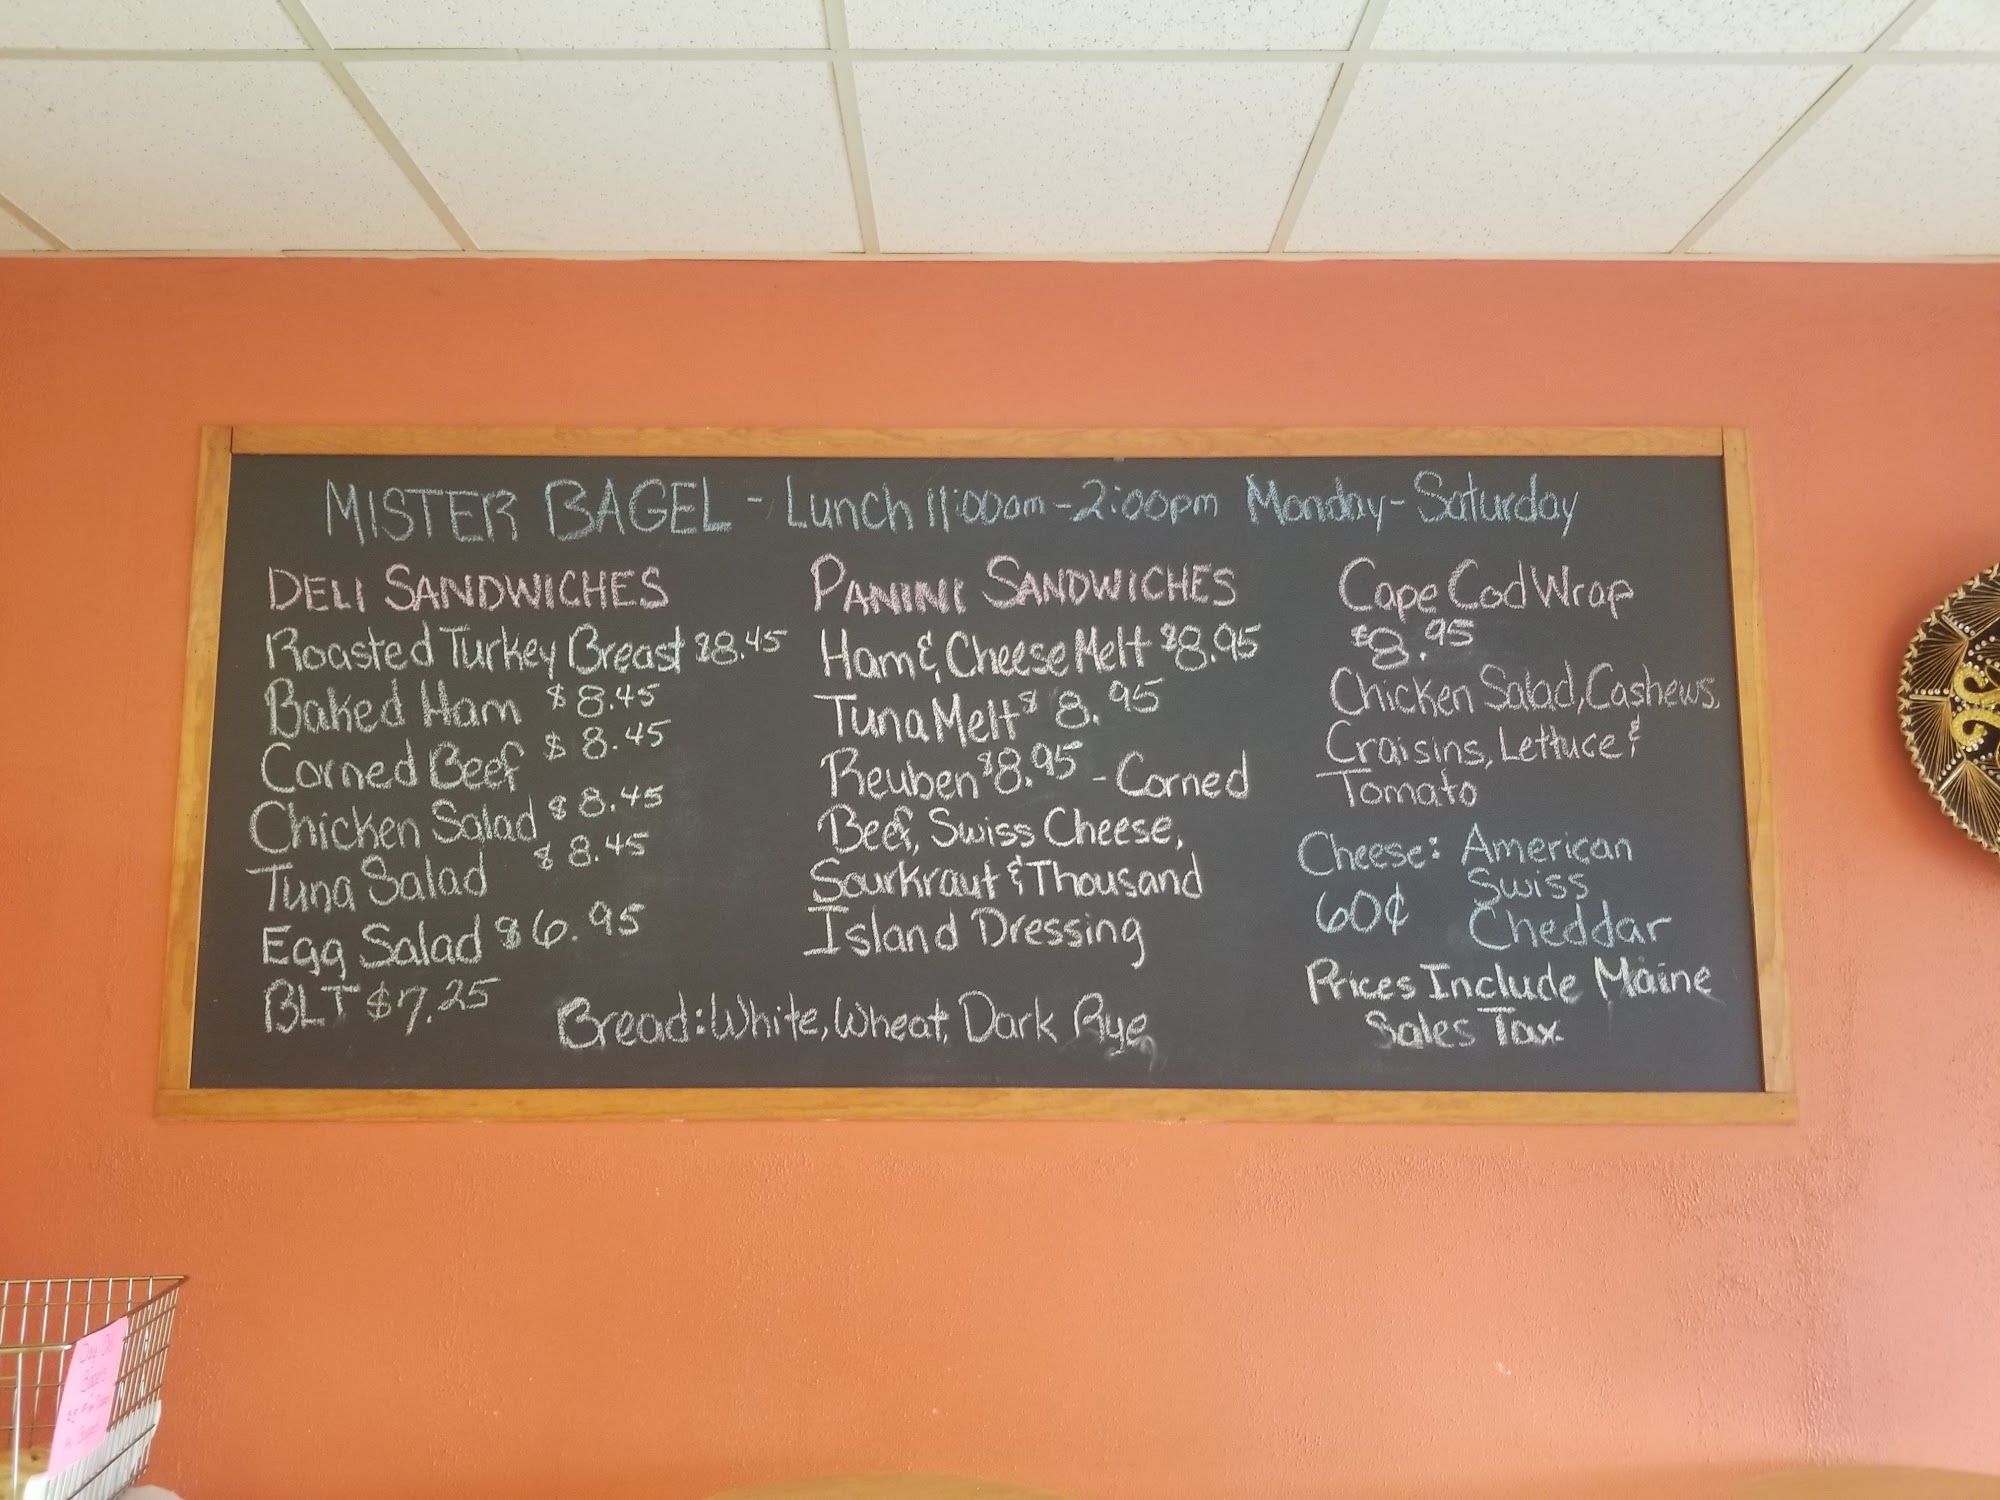 MISTER BAGEL - Lunch 11:00am-2:00pm Monday-Saturday
DELI SANDWICHES
Roasted Turkey Breast $8.45
Baked Ham $8.45
Corned Beef $8.45
Chicken Salad $8.45
Tuna Salad $8.45
Egg Salad $6.95
BLT $7.25
PANINI SANDWICHES
Ham & Cheese Melt $8.95
Tuna Melt $8.95
Reuben $8.95 - Corned
Beef, Swiss Cheese,
Sourkraut & Thousand
Island Dressing
Bread: White, Wheat, Dark Rye
Cape Cod Wrap
$8.95
Chicken Salad, Cashews,
Craisins, Lettuce &
Tomato
Cheese: American
Swiss
60¢ Cheddar
Prices Include Maine
Sales Tax.
Day Old
Bagels